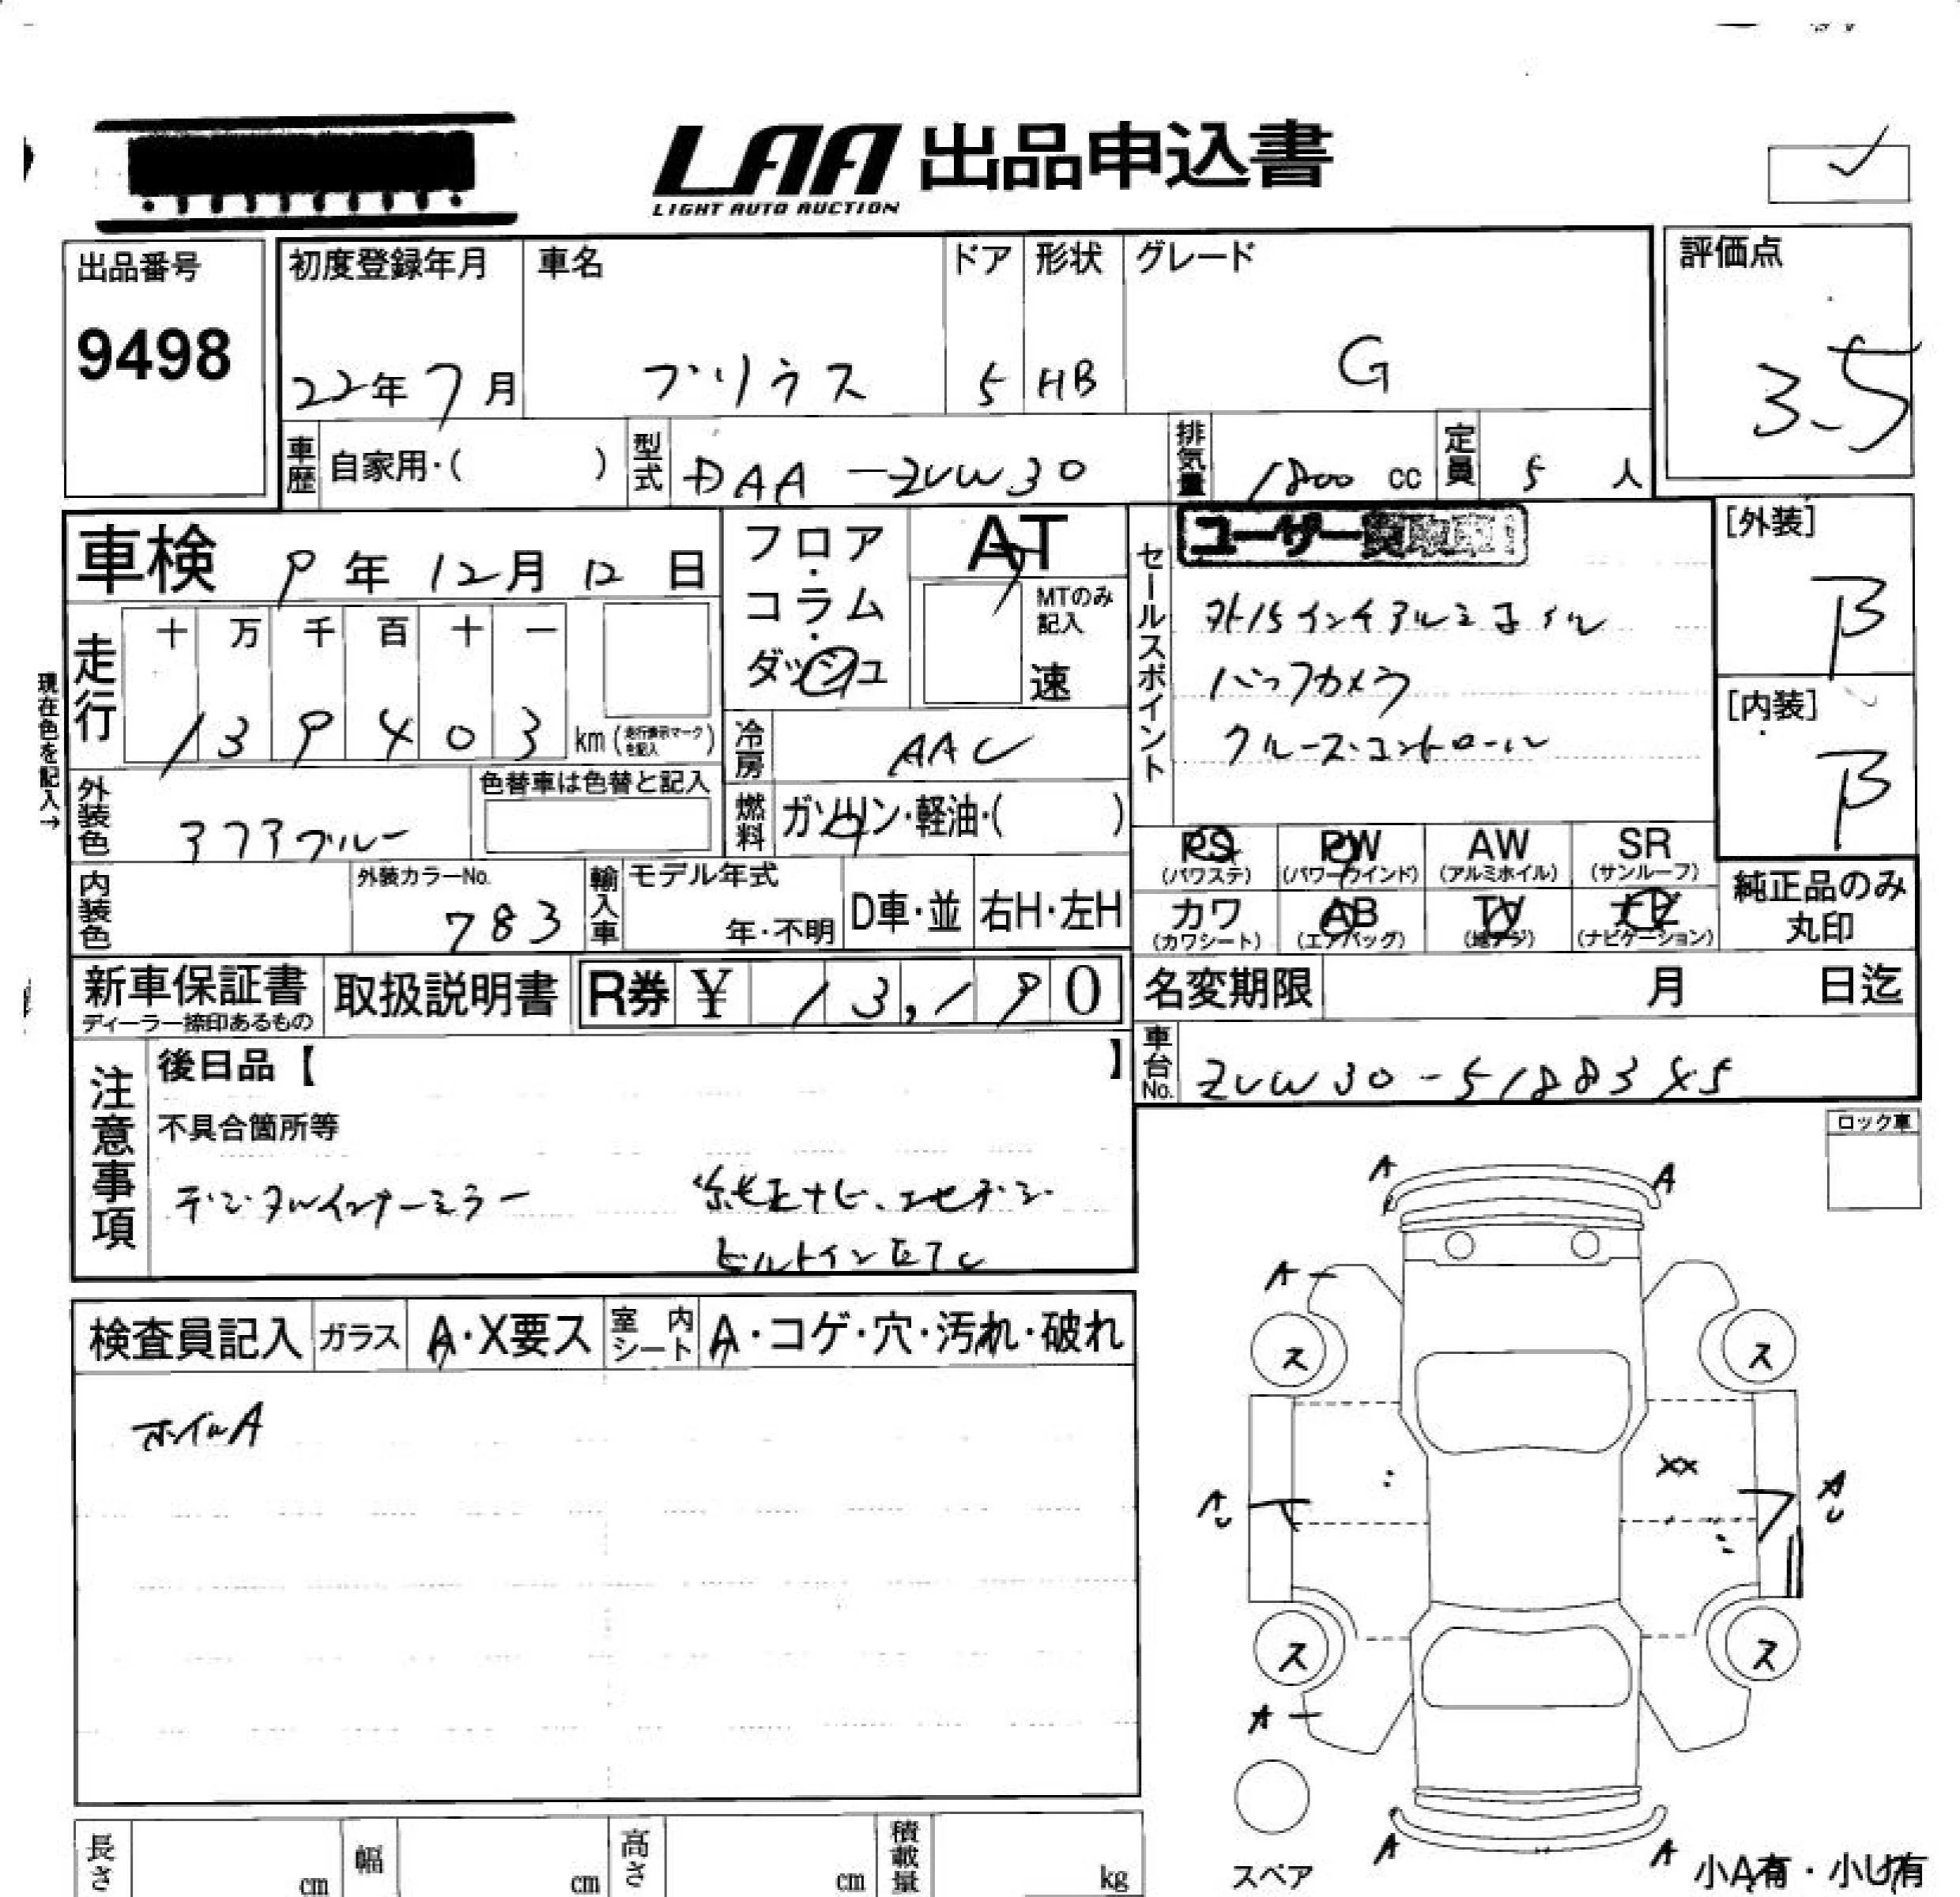 LAA 出品申込書
LIGHT AUTO AUCTION
出品番号
9498
初度登録年月 車名 ドア 形状 グレード
22年7月 プリウス 5 HB G
評価点
3.5
車歴 自家用・( ) 型式 DAA-ZVW30 排気量 1800 cc 定員 5 人
車検 9年12月12日
フロア・コラム・ダッシュ
AT
MTのみ記入
速
セールスポイント
ユーザー買取車
外15インチアルミホイル
バックカメラ
クルーズコントロール
[外装]
B
[内装]
B
現在色を記入→
走行 十 万 千 百 十 一
139403 km (走行表示マークを記入)
冷房 AAC
外装色 373ブルー
色替車は色替と記入
燃料 ガソリン・軽油・( )
PS (パワステ) PW (パワーウインド) AW (アルミホイル) SR (サンルーフ)
カワ (カワシート) AB (エアバッグ) TV (地デジ) ナビ (ナビゲーション)
純正品のみ丸印
内装色 外装カラーNo. 783
輸入車 モデル年式 年・不明 D車・並 右H・左H
新車保証書 ディーラー捺印あるもの
取扱説明書
R券 ¥ 13,190
名変期限 月 日迄
車台No. ZVW30-5188345
注意事項
後日品【 】
不具合箇所等
デジタルインナーミラー 純正ナビ、フルセグデジ
ビルトインETC
ロック車
検査員記入 ガラス A・X要ス 室内シート A・コゲ・穴・汚れ・破れ
ホイルA
A A
A
ス ス
XX
A A
U U
ス ス
A
スペア
A A
小A有・小U有
長さ cm 幅 cm 高さ cm 積載量 kg